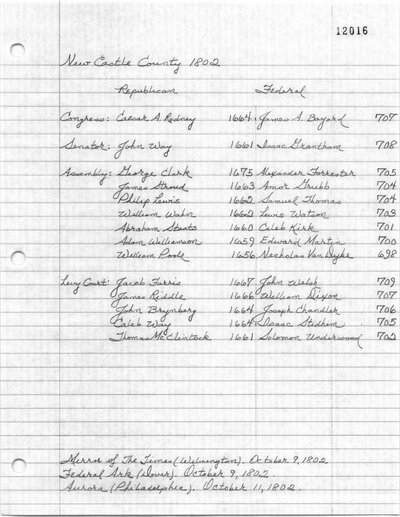 12016
New Castle County 1802
Republican Federal
Congress: Caesar A. Rodney 1664 James A. Bayard 707
Senator: John Way 1661 Isaac Grantham 708
Assembly: George Clark 1675 Alexander Forrester 705
James Stroud 1663 Amor Grubb 704
Philip Lewis 1662 Samuel Thomas 704
William Wahn 1662 Lewis Watson 703
Abraham Staats 1660 Caleb Kirk 701
Adam Williamson 1659 Edward Martin 700
William Poole 1656 Nicholas Van Dyke 698
Levy Court: Jacob Farris 1667 John Welsh 709
James Riddle 1666 William Dixon 707
John Brynberg 1664 Joseph Chandler 706
Caleb Way 1664 Isaac Stidham 705
Thomas McClintock 1661 Solomon Underwood 702
Mirror of The Times (Wilmington). October 9, 1802
Federal Ark (Dover). October 9, 1802
Aurora (Philadelphia). October 11, 1802.